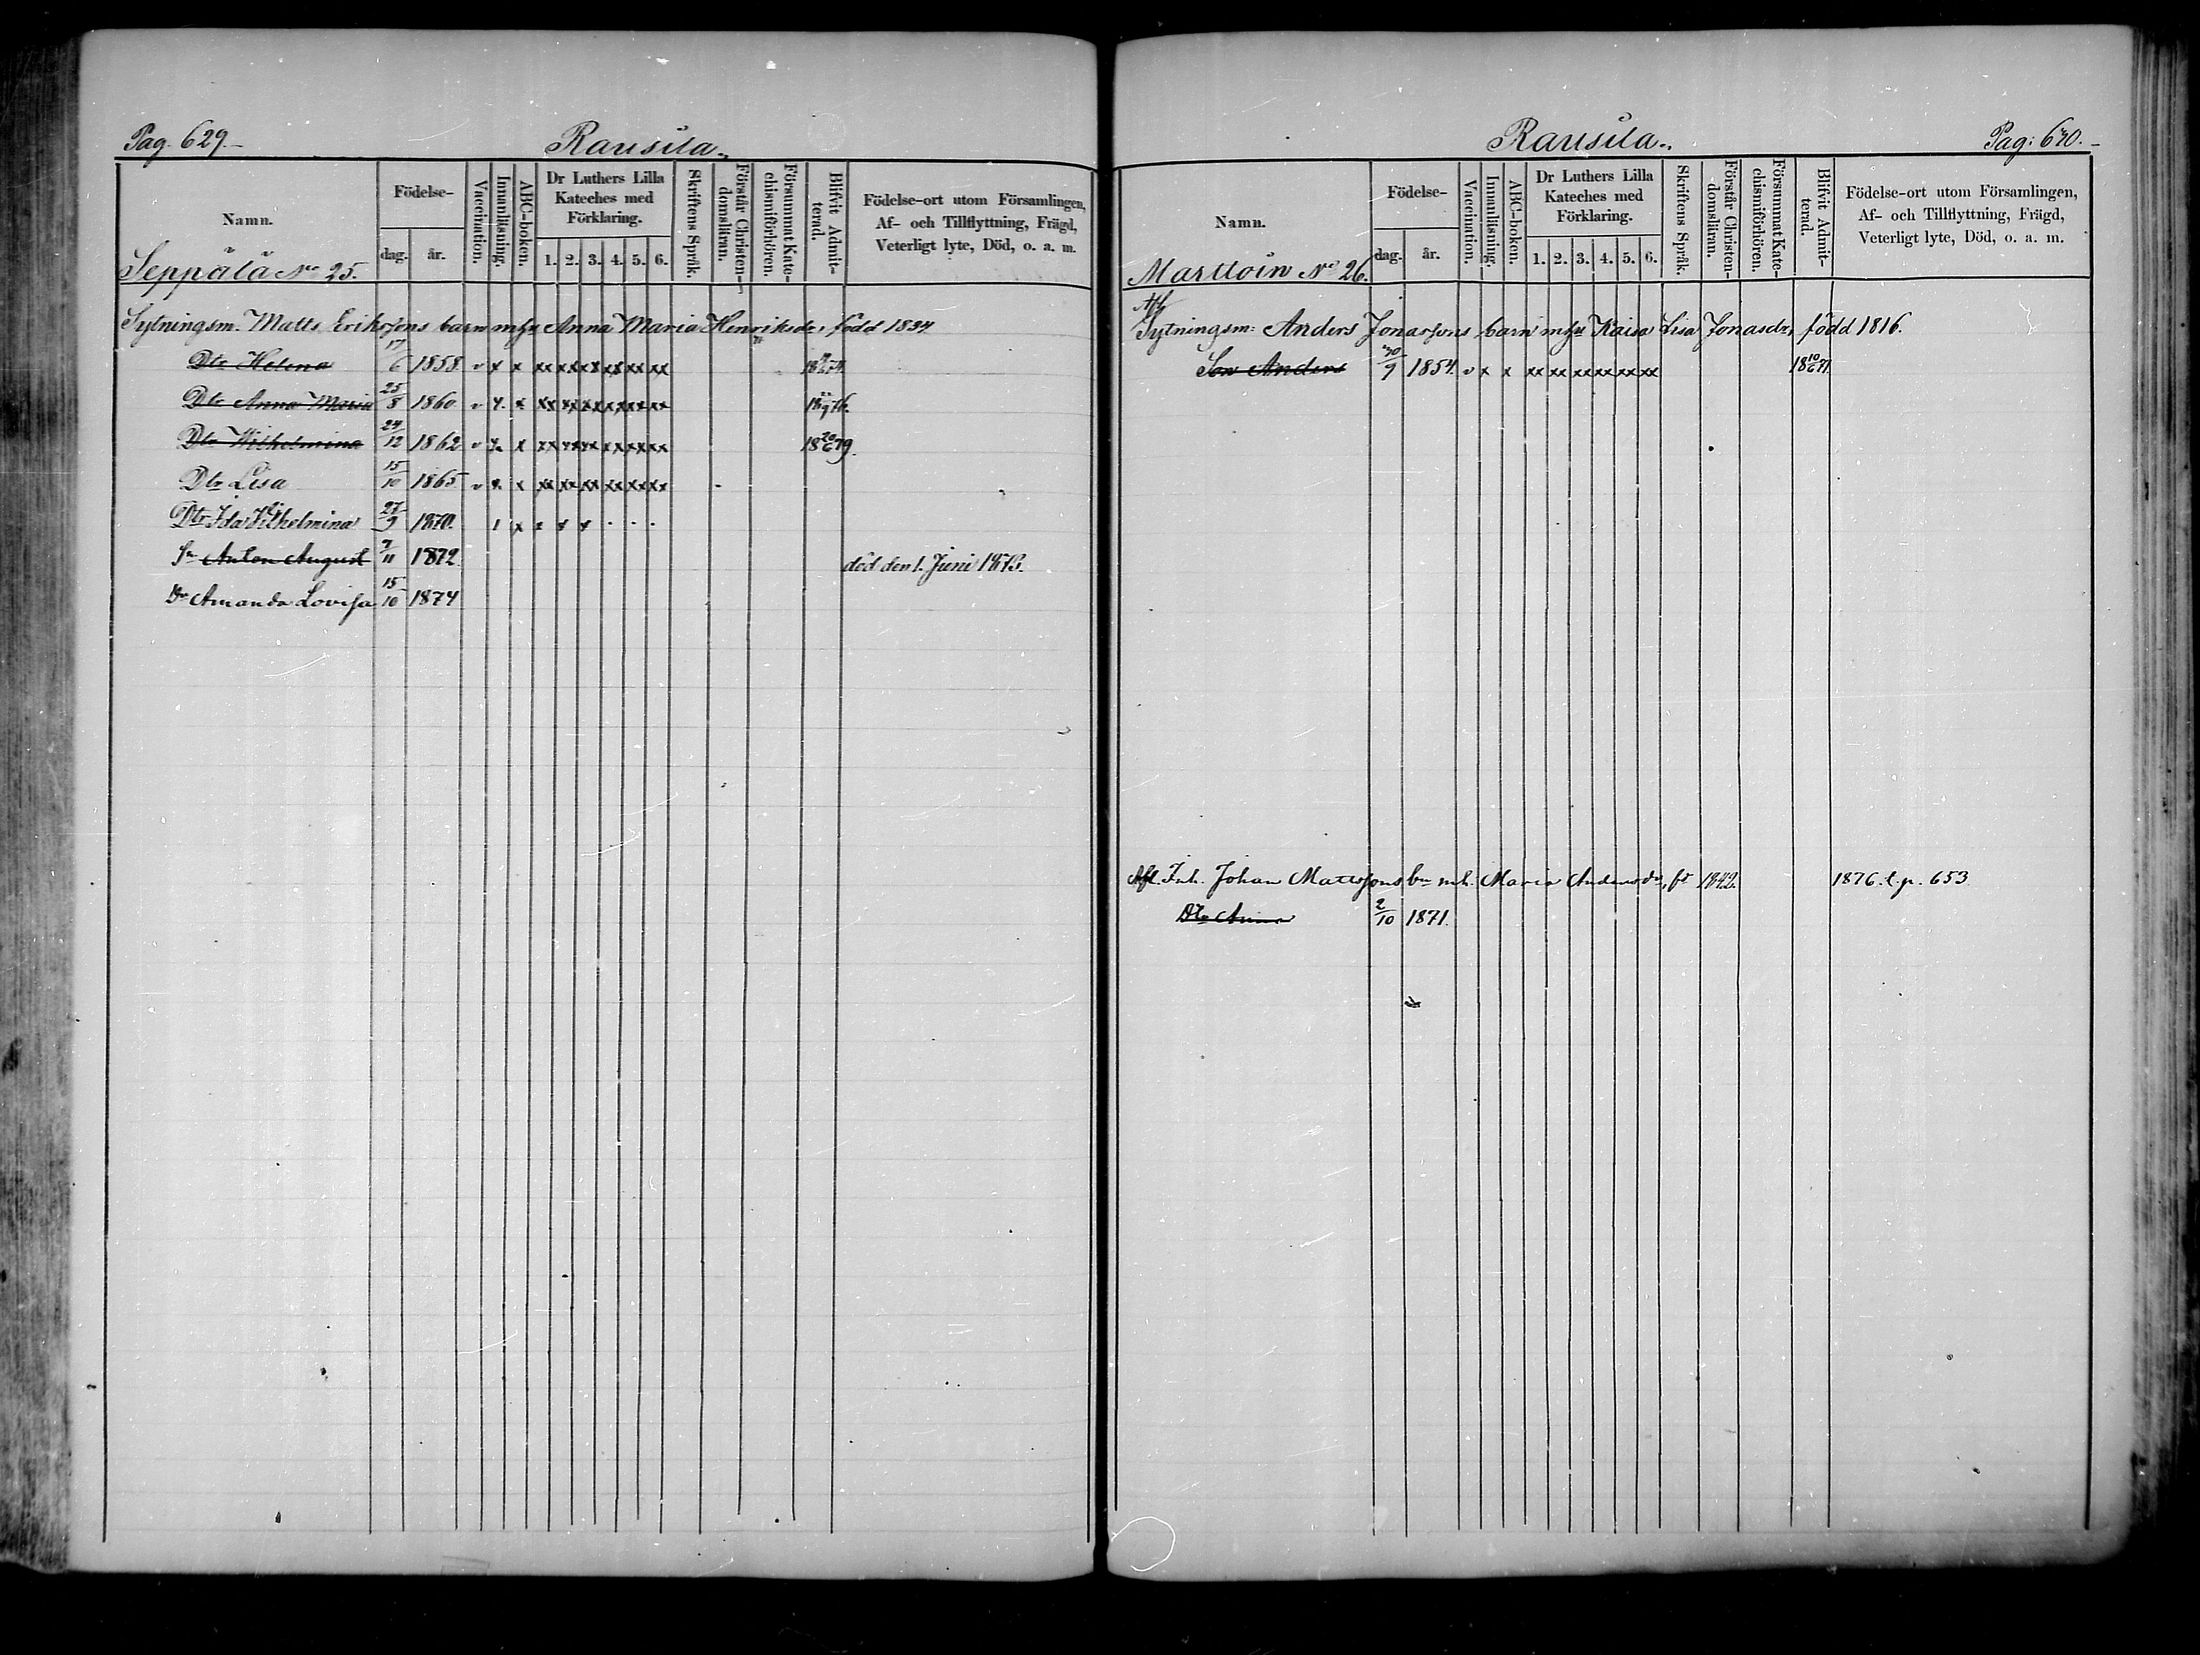 Pag. 629.
Rausila.
Namn.
Födelse-
dag.
år.
Vaccination.
Innanläsning.
ABC-boken.
Dr Luthers Lilla Kateches med Förklaring.
1. 2. 3. 4. 5. 6.
Skriftens Språk.
Förstår Christen-domsläran.
Försummat Kate-chismiförhören.
Blifvit Admit-terad.
Födelse-ort utom Församlingen,
Af- och Tillflyttning, Frägd,
Veterligt lyte, Död, o. a. m.
Seppälä No 25.
Sytningsm. Matts Erikssons barn m hu Anna Maria Henriksdr, född 1834
Dtr Helena 17/6 1858 v x x xx xx xx xx xx xx
Dtr Anna Maria 25/8 1860 v x x xx xx xx xx xx xx
Dtr Wilhelmina 24/12 1862 v x x xx xx xx xx xx xx 18 20/6 79.
Dtr Lisa 15/10 1865 v x x xx xx xx xx xx xx
Dtr Ida Wilhelmina 27/9 1870. 1 x x x x . . .
Sn Anton August 7/11 1872. död den 1. Juni 1873.
Dr Amanda Lovisa 15/10 1874
Rausila.
Pag: 630.
Namn.
Födelse-
dag.
år.
Vaccination.
Innanläsning.
ABC-boken.
Dr Luthers Lilla Kateches med Förklaring.
1. 2. 3. 4. 5. 6.
Skriftens Språk.
Förstår Christen-domsläran.
Försummat Kate-chismiförhören.
Blifvit Admit-terad.
Födelse-ort utom Församlingen,
Af- och Tillflyttning, Frägd,
Veterligt lyte, Död, o. a. m.
Marttoin No 26.
Afl
Sytningsm: Anders Jonassons barn m hu Kaisa Lisa Jonasdr, född 1816.
Son Anders 30/9 1854. v x x xx xx xx xx xx xx 18 10/6 71.
Afl. Inh. Johan Mattssons bn m h. Maria Andersdr, fd 1842. 1876. t. p. 653
Dtr Anna 2/10 1871.